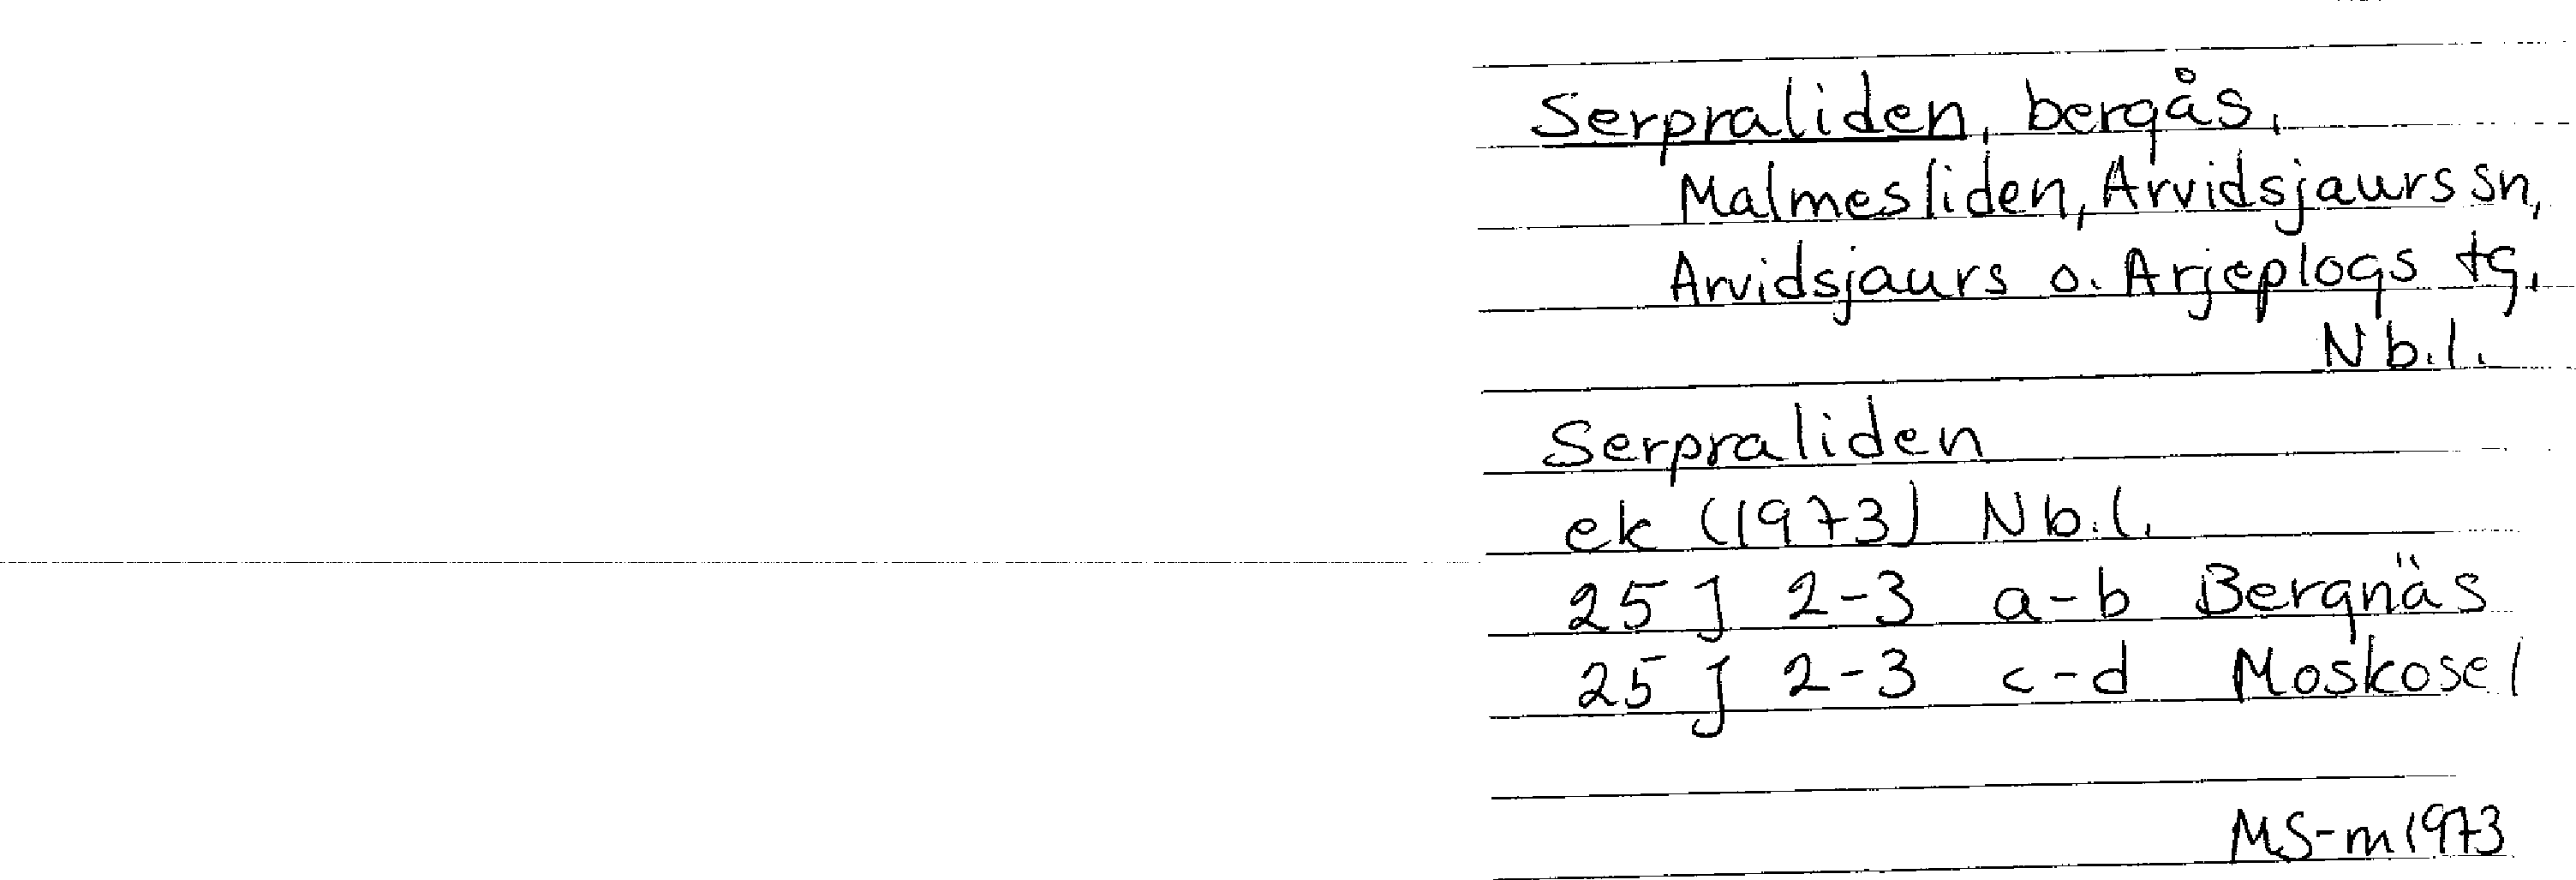 Serpraliden, bergås,
Malmesliden, Arvidsjaurs sn,
Arvidsjaurs o. Arjeplogs tg,
Nb.l.
Serpraliden
ek (1973) Nb.l.
25 J 2-3 a-b Bergnäs
25 J 2-3 c-d Moskosel
MS-m 1973